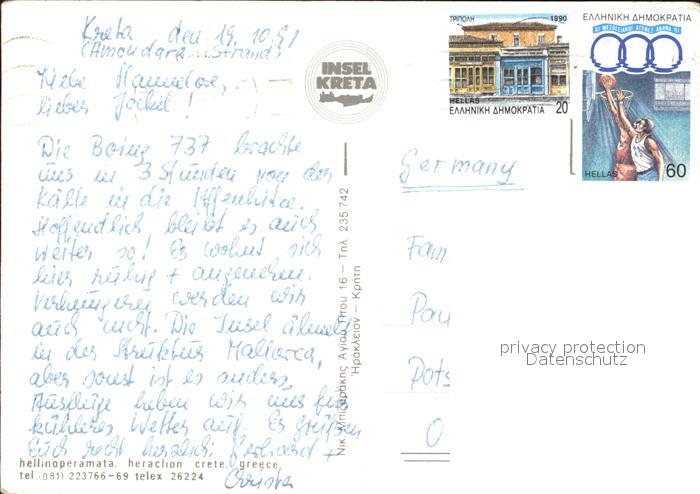 Kreta, den 19.10.91
(Amoudara-Strand)
Liebe Hannelore,
lieber Jockel!
Die Boing 737 brachte
uns in 3 Stunden von der
Kälte in die Affenhitze.
Hoffendlich bleibt es auch
weiter so! Es wohnt sich
hier ruhig + angenehm.
Verhungern werden wir
auch nicht. Die Insel ähnelt
in der Struktur Mallorca,
aber sonst ist es anders.
Ausflüge heben wir uns für
kühleres Wetter auf. Es grüßen
Euch recht herzlich Gerhard +
Christa
hellinoperamata. heraclion crete. greece
tel.(081) 223766-69 telex 26224
INSEL
KRETA
Νικ. Μπιτζαράκης Αγίου Τίτου 16 — Τηλ. 235.742
Ηράκλειον — Κρήτη
ΤΡΙΠΟΛΗ 1990
HELLAS 20
ΕΛΛΗΝΙΚΗ ΔΗΜΟΚΡΑΤΙΑ
ΕΛΛΗΝΙΚΗ ΔΗΜΟΚΡΑΤΙΑ
XI ΜΕΣΟΓΕΙΑΚΟΙ ΑΓΩΝΕΣ ΑΘΗΝΑ '91
HELLAS 60
Germany
Fam
Pau
Pots
O
privacy protection
Datenschutz